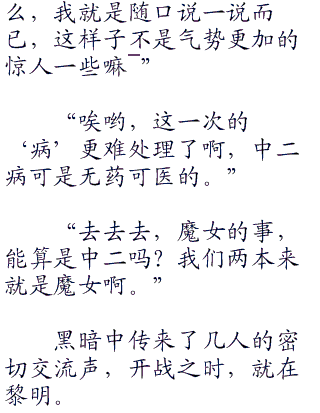 么，我就是随口说一说而
已，这样子不是气势更加的
惊人一些嘛¯”
“唉哟，这一次的
‘病’更难处理了啊，中二
病可是无药可医的。”
“去去去，魔女的事，
能算是中二吗？我们两本来
就是魔女啊。”
黑暗中传来了几人的密
切交流声，开战之时，就在
黎明。